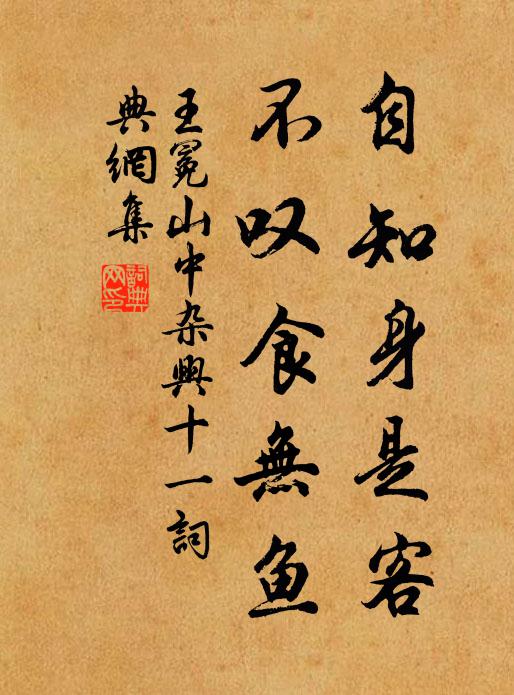 自知身是客
不叹食無鱼
王冕山中杂興十一詞
典網集
詞典网印